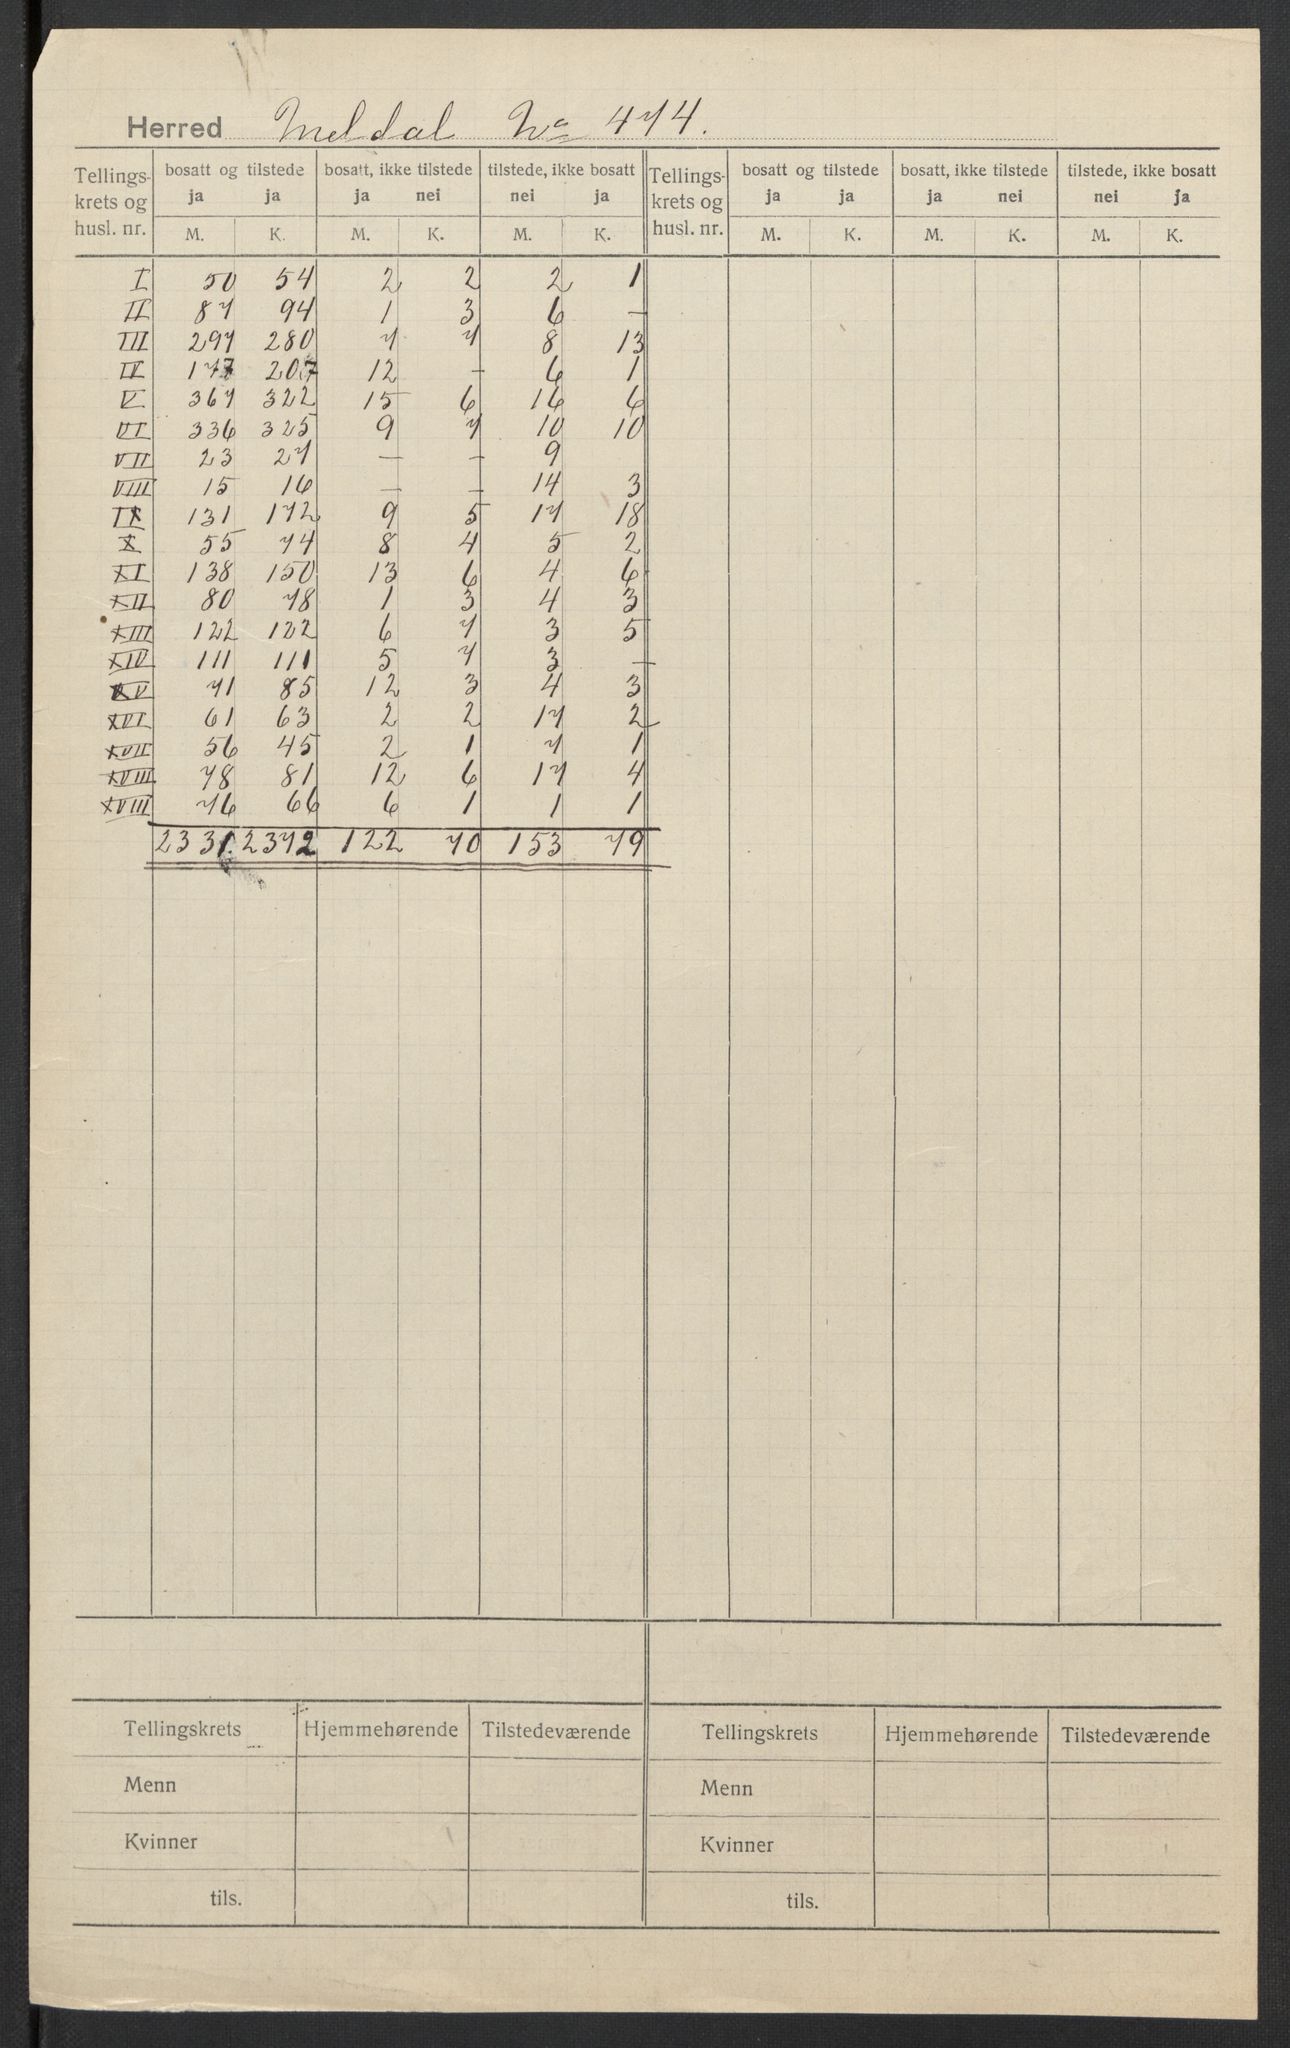 Herred Meldal No 474.
Tellings- bosatt og tilstede bosatt, ikke tilstede tilstede, ikke bosatt Tellings- bosatt og tilstede bosatt, ikke tilstede tilstede, ikke bosatt
krets og ja ja ja nei nei ja krets og ja ja ja nei nei ja
husl. nr. M. K. M. K. M. K. husl. nr. M. K. M. K. M. K.
I 50 54 2 2 2 1
II 87 94 1 3 6 —
III 297 280 7 7 8 13
IV 177 207 12 — 6 1
V 367 322 15 6 16 6
VI 336 325 9 7 10 10
VII 23 27 — — 9
VIII 15 16 — — 14 3
IX 131 172 9 5 17 18
X 55 74 8 4 5 2
XI 138 150 13 6 4 6
XII 80 78 1 3 4 3
XIII 122 122 6 7 3 5
XIV 111 111 5 7 3 —
XV 71 85 12 3 4 3
XVI 61 63 2 2 17 2
XVII 56 45 2 1 7 1
XVIII 78 81 12 6 17 4
XVIII 76 66 6 1 1 1
2331 2372 122 70 153 79
Tellingskrets Hjemmehørende Tilstedeværende Tellingskrets Hjemmehørende Tilstedeværende
Menn Menn
Kvinner Kvinner
tils. tils.